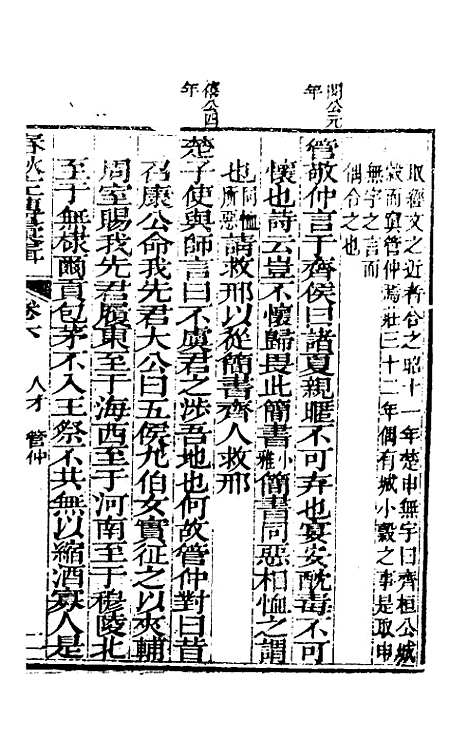 閔公元年
僖公四年
取經文之近者合之昭十一年楚申無宇曰齊桓公城
穀而寘管仲焉莊三十二年偶有城小穀之事是取申
無宇之言而
偶合之也
管敬仲言于齊侯曰諸夏親暱不可弃也宴安酖毒不可
懷也詩云豈不懷歸畏此簡書小雅簡書同惡相恤之謂
也同恤所惡請救邢以從簡書齊人救邢
楚子使與師言曰不虞君之涉吾地也何故管仲對曰昔
召康公命我先君大公曰五侯九伯女實征之以夾輔
周室賜我先君履東至于海西至于河南至于穆陵北
至于無棣爾貢包茅不入王祭不共無以縮酒寡人是
卷六
人才
管仲
二